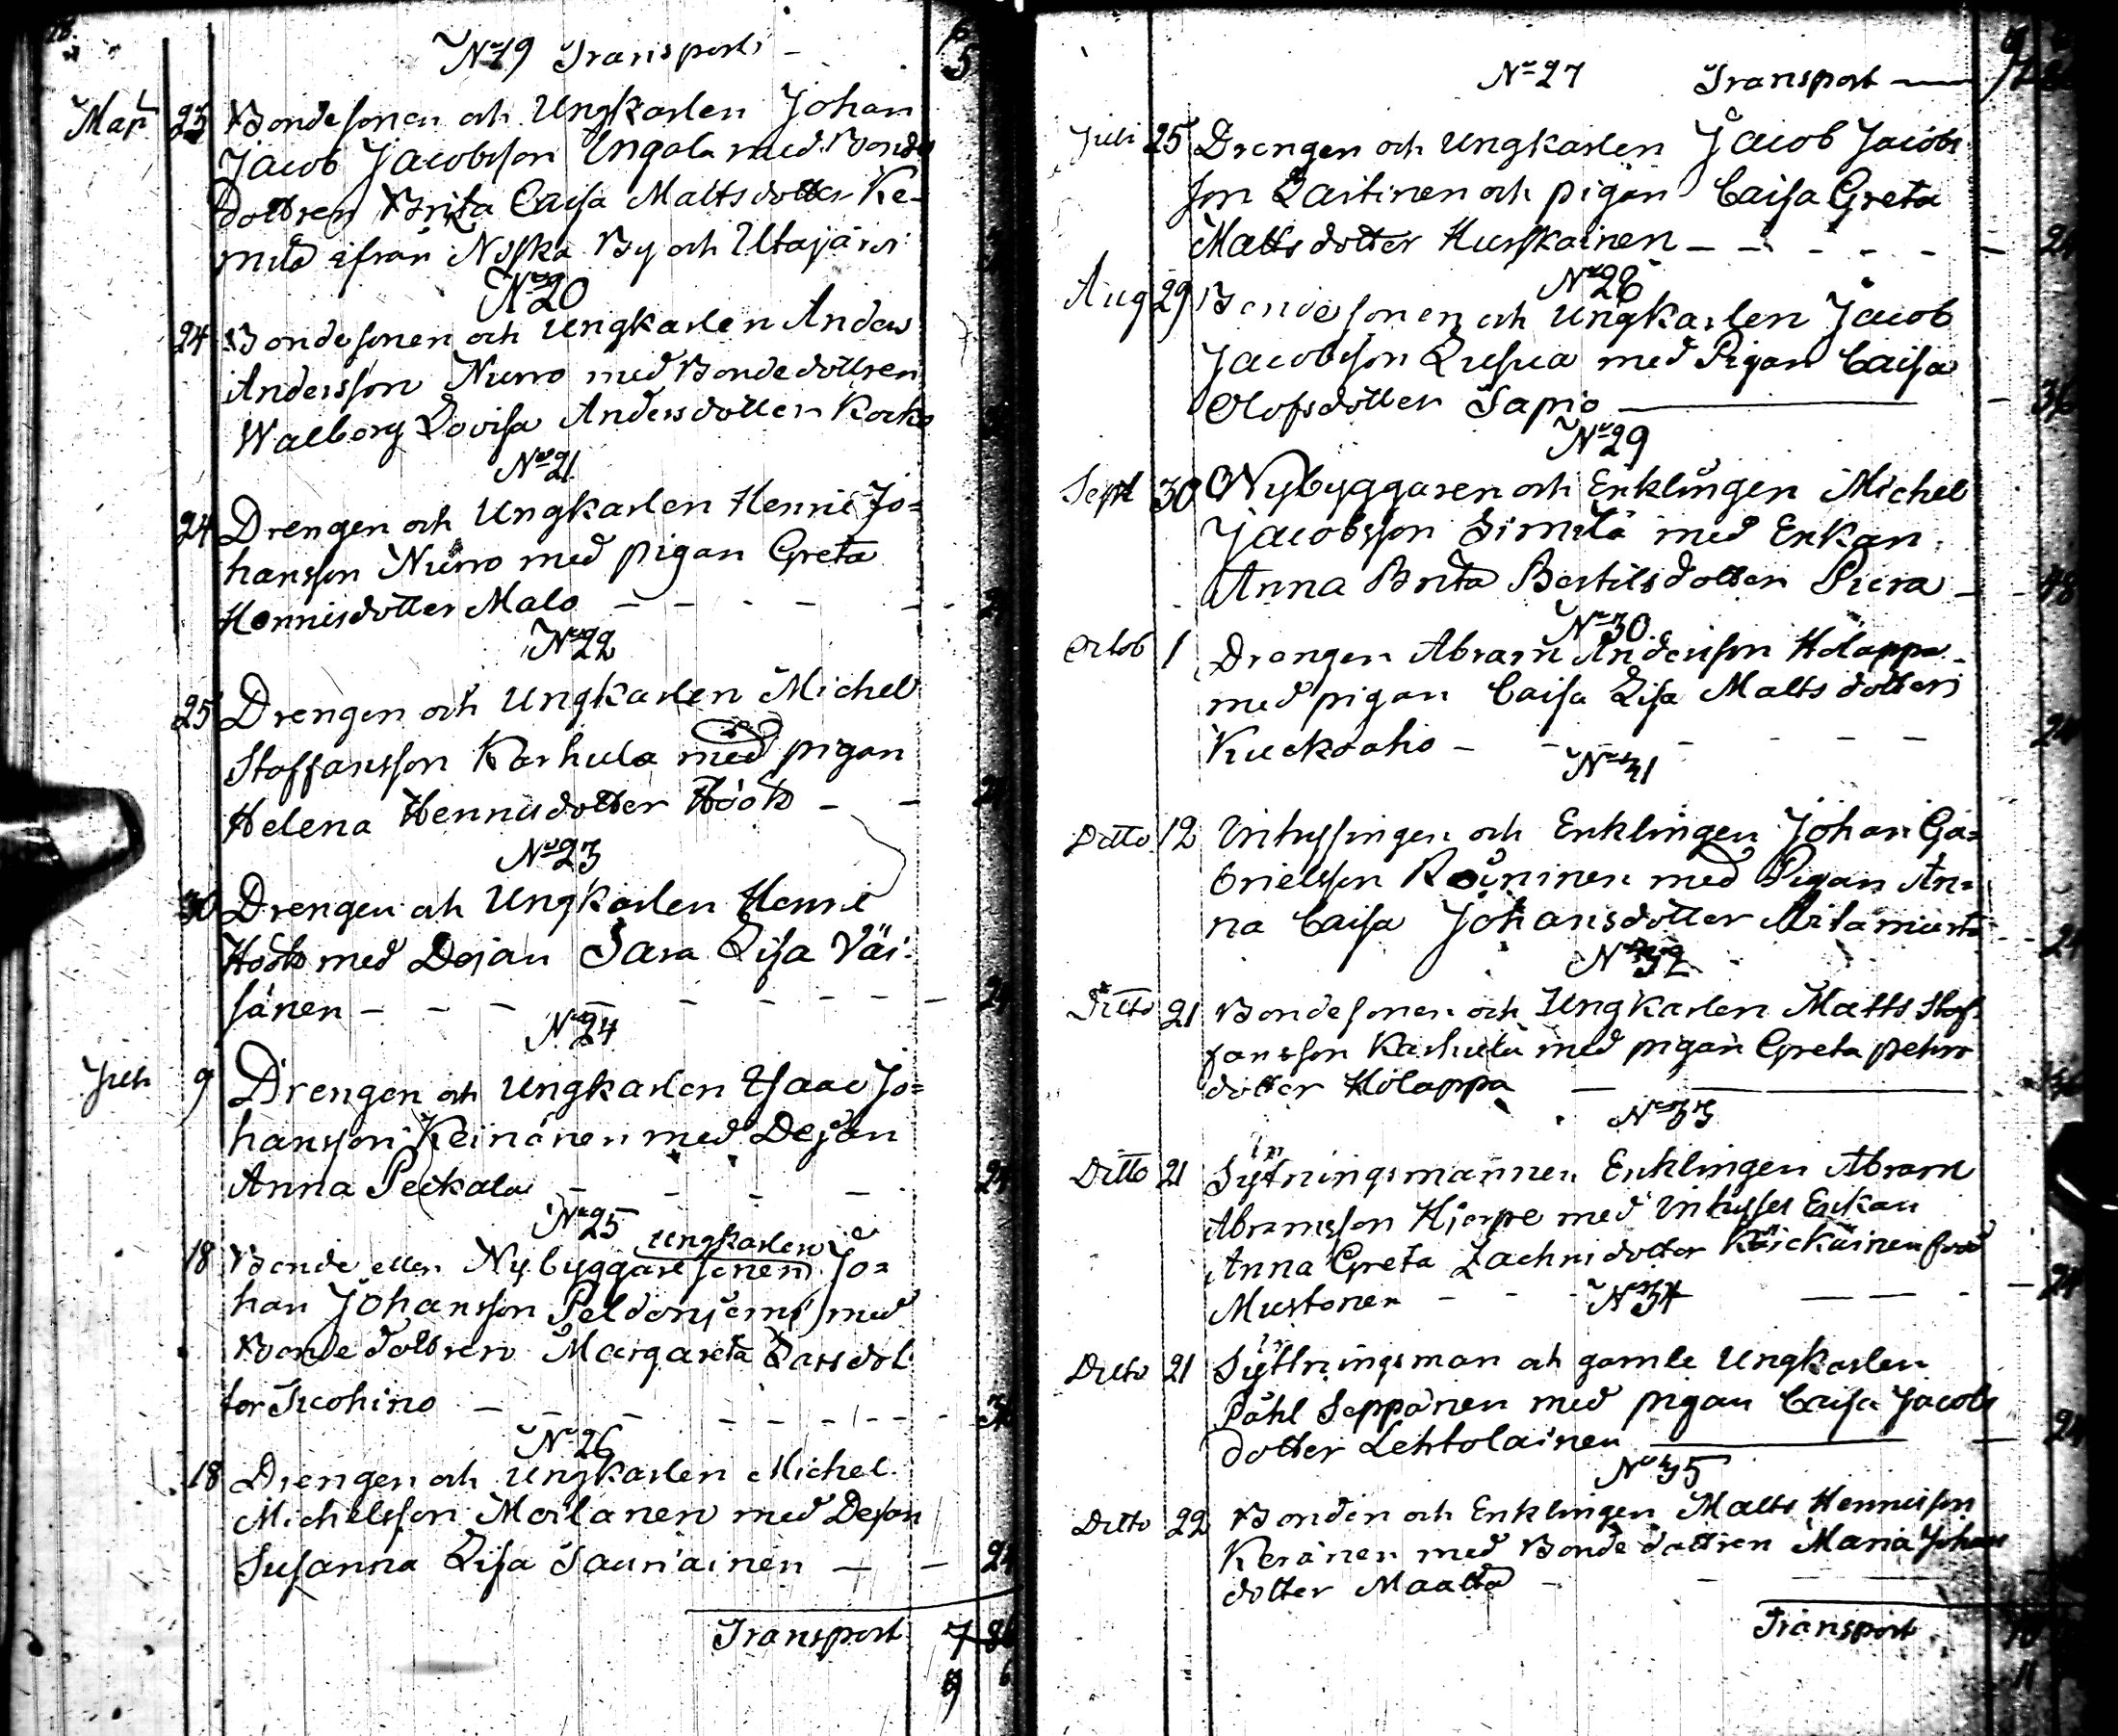 No 19 Transport - 5
Maji 23 Bondesonen och Ungkarlen Johan
Jacob Jacobsson Ungala med Bonde
dottren Brita Caisa Mattsdotter Ke-
milä ifrån Niska By och Utajärvi
No 20
24 Bondesonen och Ungkarlen Anders
Andersson Nurro med Bondedottren
Walborg Lovisa Andersdotter Kocko
No 21
24 Drengen och Ungkarlen Henric Jo=
hansson Nurro med pigan Greta
Hennricsdotter Malo - - - -
No 22
25 Drengen och Ungkarlen Michel
Staffansson Karhula med pigan
Helena Hennricsdotter Höök - -
No 23
30 Drengen och Ungkarlen Henric
Höök med Dejan Sara Lisa Väi-
sänen - - - - - - - - 24
No 24
Juli 9 Drengen och Ungkarlen Isaac Jo=
hansson Keinänen med Dejan
Anna Peckala - - - - 24
No 25
ungkarlen
18 Bonde eller Nybyggare sonen Jo=
han Johansson Peldoniemi med
Bonde dottren Margareta Larsdot
ter Jucohino - - - - - - - 36
No 26
18 Drengen och Ungkarlen Michel
Michelsson Moilanen med Dejan
Susanna Lisa Sauriainen - - 24
Transport 7 86
9
No 27 Transport - 9
Juli 25 Drengen och Ungkarlen Jacob Jacobs
son Laitinen och pigan Caisa Greta
Mattsdotter Hurskainen - - - - - 24
No 28
Aug 29 Bondesonen och Ungkarlen Jacob
Jacobsson Lusua med Pigan Caisa
Olofsdotter Sapio - 36
No 29
Sept 30 Nybyggaren och Enklingen Michel
Jacobsson Similä med Enkan
Anna Brita Bertilsdotter Piera - 48
No 30
Octob 1 Drengen Abram Andersson Holappa
med pigan Caisa Lisa Mattsdotter
Kuckoaho - - - - - - - 24
No 31
Ditto 12 Inhysingen och Enklingen Johan Ga=
brielsson Roininen med Pigan An=
na Caisa Johansdotter - 24
No 32
Ditto 21 Bondesonen och Ungkarlen Matts Staf
fansson Karhula med pigan Greta Pehrs
dotter Holappa - 36
No 33
Ditto 21 Sytningsmannen Enklingen Abram
Abramsson Hjerpe med Inhyses Enkan
Anna Greta Zachrisdotter Keickäinen född
Mustonen - - - 24
No 34
Ditto 21 Syttningsman och gamle Ungkarlen
Påhl Seppänen med pigan Caisa Jacobs
dotter Lehtolainen - 24
No 35
Ditto 22 Bonden och Enklingen Matts Hennricsson
Keränen med Bonde dottren Maria Johans
dotter Maalta -
Transport 10
11